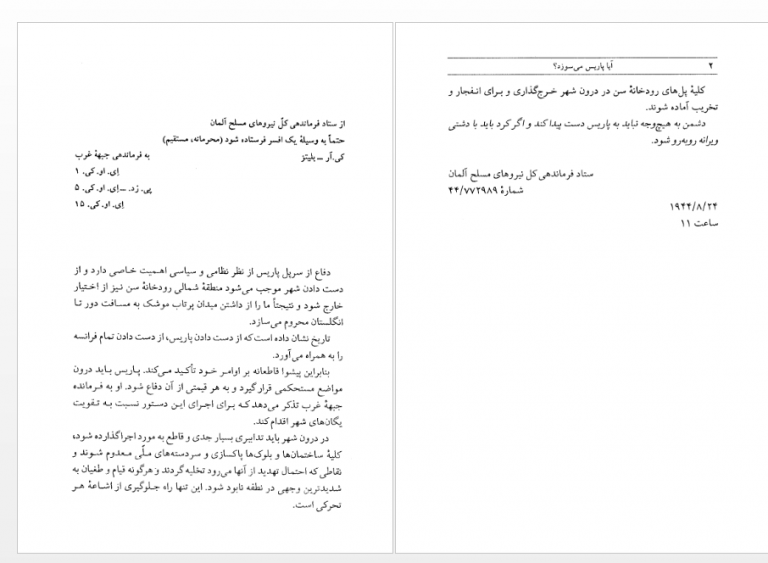 از ستاد فرماندهی کلّ نیروهای مسلح آلمان
حتماً به وسیلهٔ یک افسر فرستاده شود (محرمانه، مستقیم)
کی.آر ــ بلیتز
به فرماندهی جبههٔ غرب
اِی. او. کی. ۱
پی. زد. ــ اِی. او. کی. ۵
اِی. او. کی. ۱۵
دفاع از سرپل پاریس از نظر نظامی و سیاسی اهمیت خاصی دارد و از
دست دادن شهر موجب می‌شود منطقهٔ شمالی رودخانهٔ سن نیز از اختیار
خارج شود و نتیجتاً ما را از داشتن میدان پرتاب موشک به مسافت دور تا
انگلستان محروم می‌سازد.
تاریخ نشان داده است که از دست دادن پاریس، از دست دادن تمام فرانسه
را به همراه می‌آورد.
بنابراین پیشوا قاطعانه بر اوامر خود تأکید می‌کند. پاریس باید درون
مواضع مستحکمی قرار گیرد و به هر قیمتی از آن دفاع شود. او به فرمانده
جبههٔ غرب تذکر می‌دهد که برای اجرای این دستور نسبت به تقویت
یگان‌های شهر اقدام کند.
در درون شهر باید تدابیری بسیار جدی و قاطع به مورد اجرا گذارده شود،
کلیهٔ ساختمان‌ها و بلوک‌ها پاکسازی و سردسته‌های ملّی معدوم شوند و
نقاطی که احتمال تهدید از آنها می‌رود تخلیه گردند و هرگونه قیام و طغیان به
شدیدترین وجهی در نطفه نابود شود. این تنها راه جلوگیری از اشاعهٔ هر
تحرکی است.
۲ آیا پاریس می‌سوزد؟
کلیهٔ پل‌های رودخانهٔ سن در درون شهر خرج‌گذاری و برای انفجار و
تخریب آماده شوند.
دشمن به هیچ‌وجه نباید به پاریس دست پیدا کند و اگر کرد باید با دشتی
ویرانه روبه‌رو شود.
ستاد فرماندهی کل نیروهای مسلح آلمان
شمارهٔ ۴۴/۷۷۲۹۸۹
۱۹۴۴/۸/۲۴
ساعت ۱۱